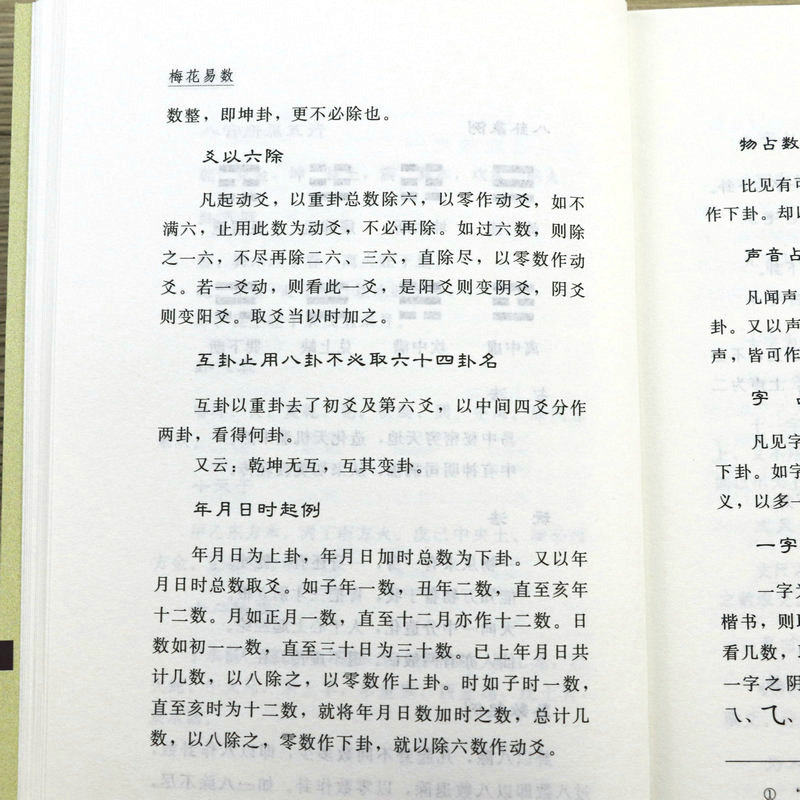 梅花易数
数整，即坤卦，更不必除也。
爻以六除
凡起动爻，以重卦总数除六，以零作动爻，如不
满六，止用此数为动爻，不必再除。如过六数，则除
之一六，不尽再除二六、三六，直除尽，以零数作动
爻。若一爻动，则看此一爻，是阳爻则变阴爻，阴爻
则变阳爻。取爻当以时加之。
互卦止用八卦不必取六十四卦名
互卦以重卦去了初爻及第六爻，以中间四爻分作
两卦，看得何卦。
又云：乾坤无互，互其变卦。
年月日时起例
年月日为上卦，年月日加时总数为下卦。又以年
月日时总数取爻。如子年一数，丑年二数，直至亥年
十二数。月如正月一数，直至十二月亦作十二数。日
数如初一一数，直至三十日为三十数。已上年月日共
计几数，以八除之，以零数作上卦。时如子时一数，
直至亥时为十二数，就将年月日数加时之数，总计几
数，以八除之，零数作下卦，就以除六数作动爻。
物占数
比见有可
作下卦。却以
声音占
凡闻声
卦。又以声
声，皆可作
字
凡见字
下卦。如字
义，以多一
一字
一字为
楷书，则取
看几数，
一字之阴
⺄、乁、
①